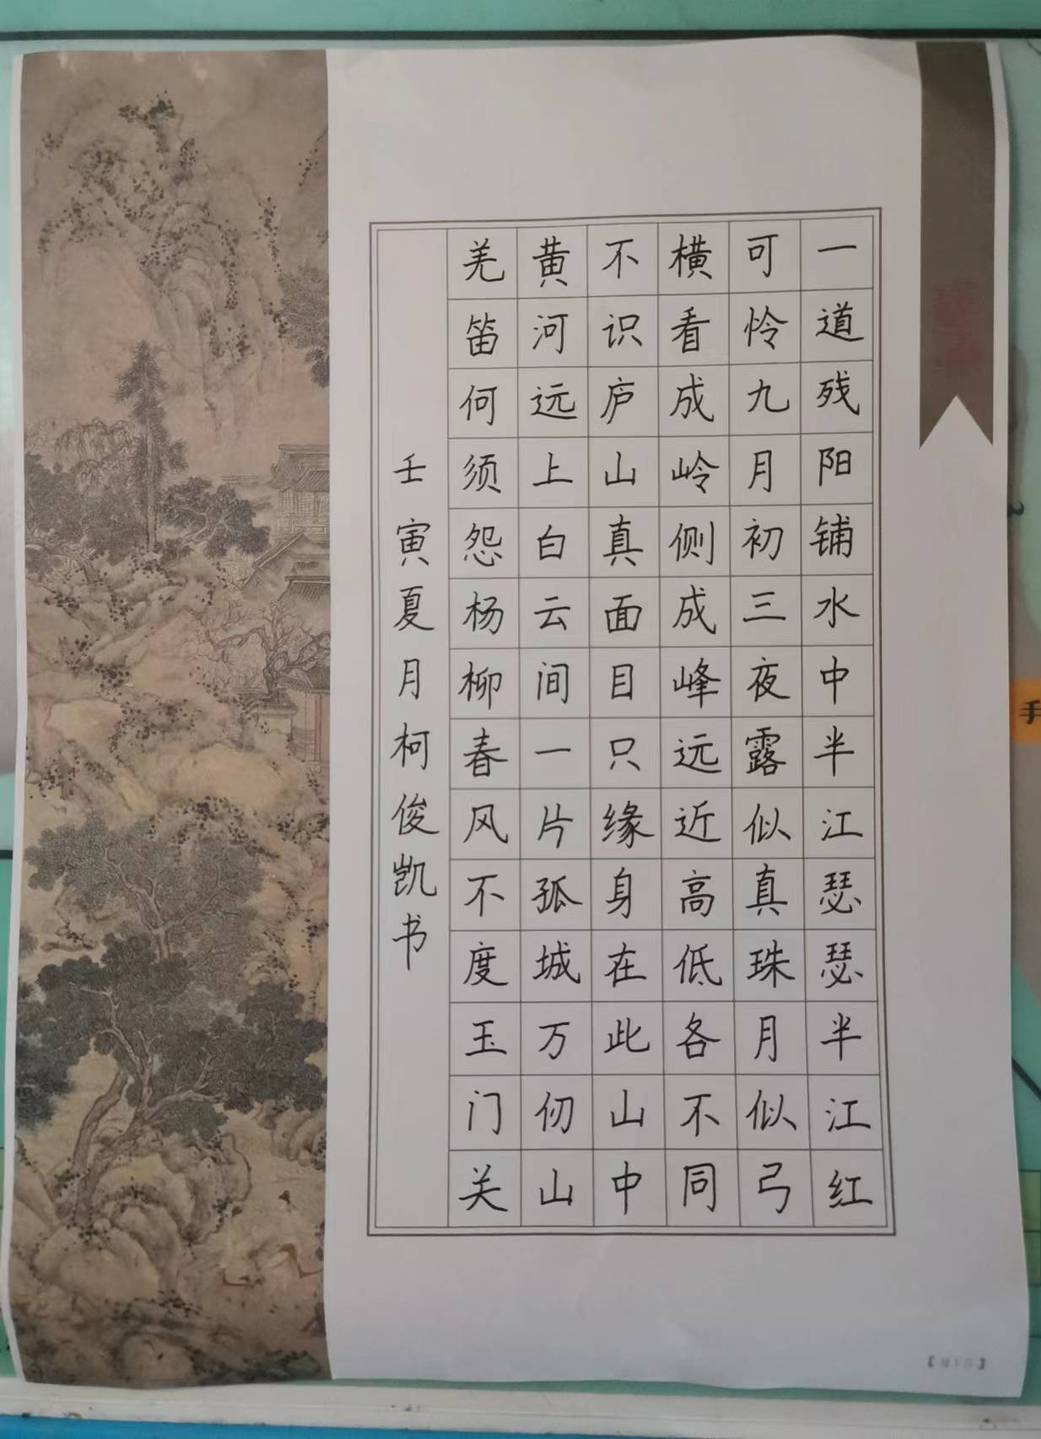 一道残阳铺水中半江瑟瑟半江红
可怜九月初三夜露似真珠月似弓
横看成岭侧成峰远近高低各不同
不识庐山真面目只缘身在此山中
黄河远上白云间一片孤城万仞山
羌笛何须怨杨柳春风不度玉门关
壬寅夏月柯俊凯书
手